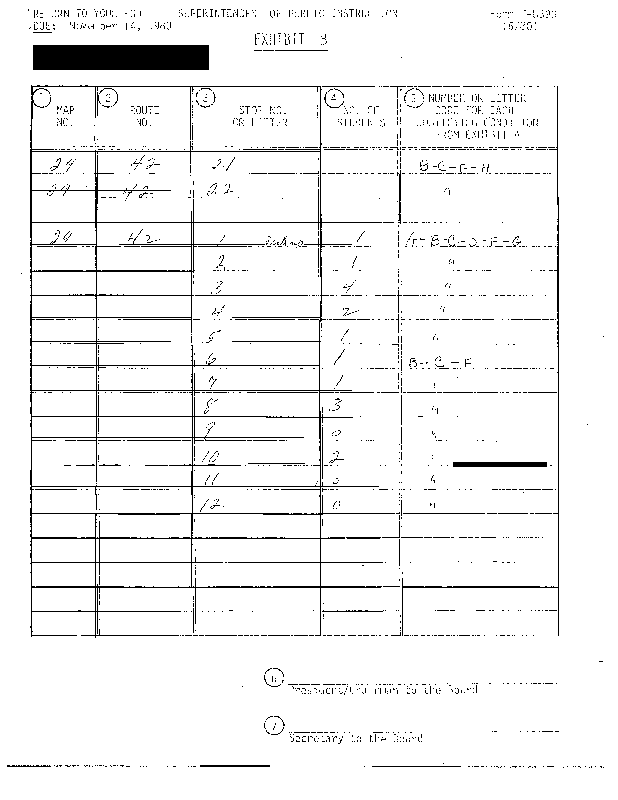 RETURN TO YOUR SUPERINTENDENT OF PUBLIC INSTRUCTION Form
DUE: November 14,
EXHIBIT B
1 2 3 4 5 NUMBER OR LETTER
MAP ROUTE STOP NO. NO. OF CODE FOR EACH
NO. NO. OR LETTER STUDENTS CONDITION
FROM EXHIBIT A
29 42 21 B-C-F-H
29 42 22 "
29 42 1 1 B-C-D-F-G
2 1 "
3 4 "
4 2 "
5 1 "
6 1 B-C-F
7 1 "
8 3 "
9 0 "
10 2 "
11 "
12 0 "
6
President/Chairman to the Board
7
Secretary to the Board